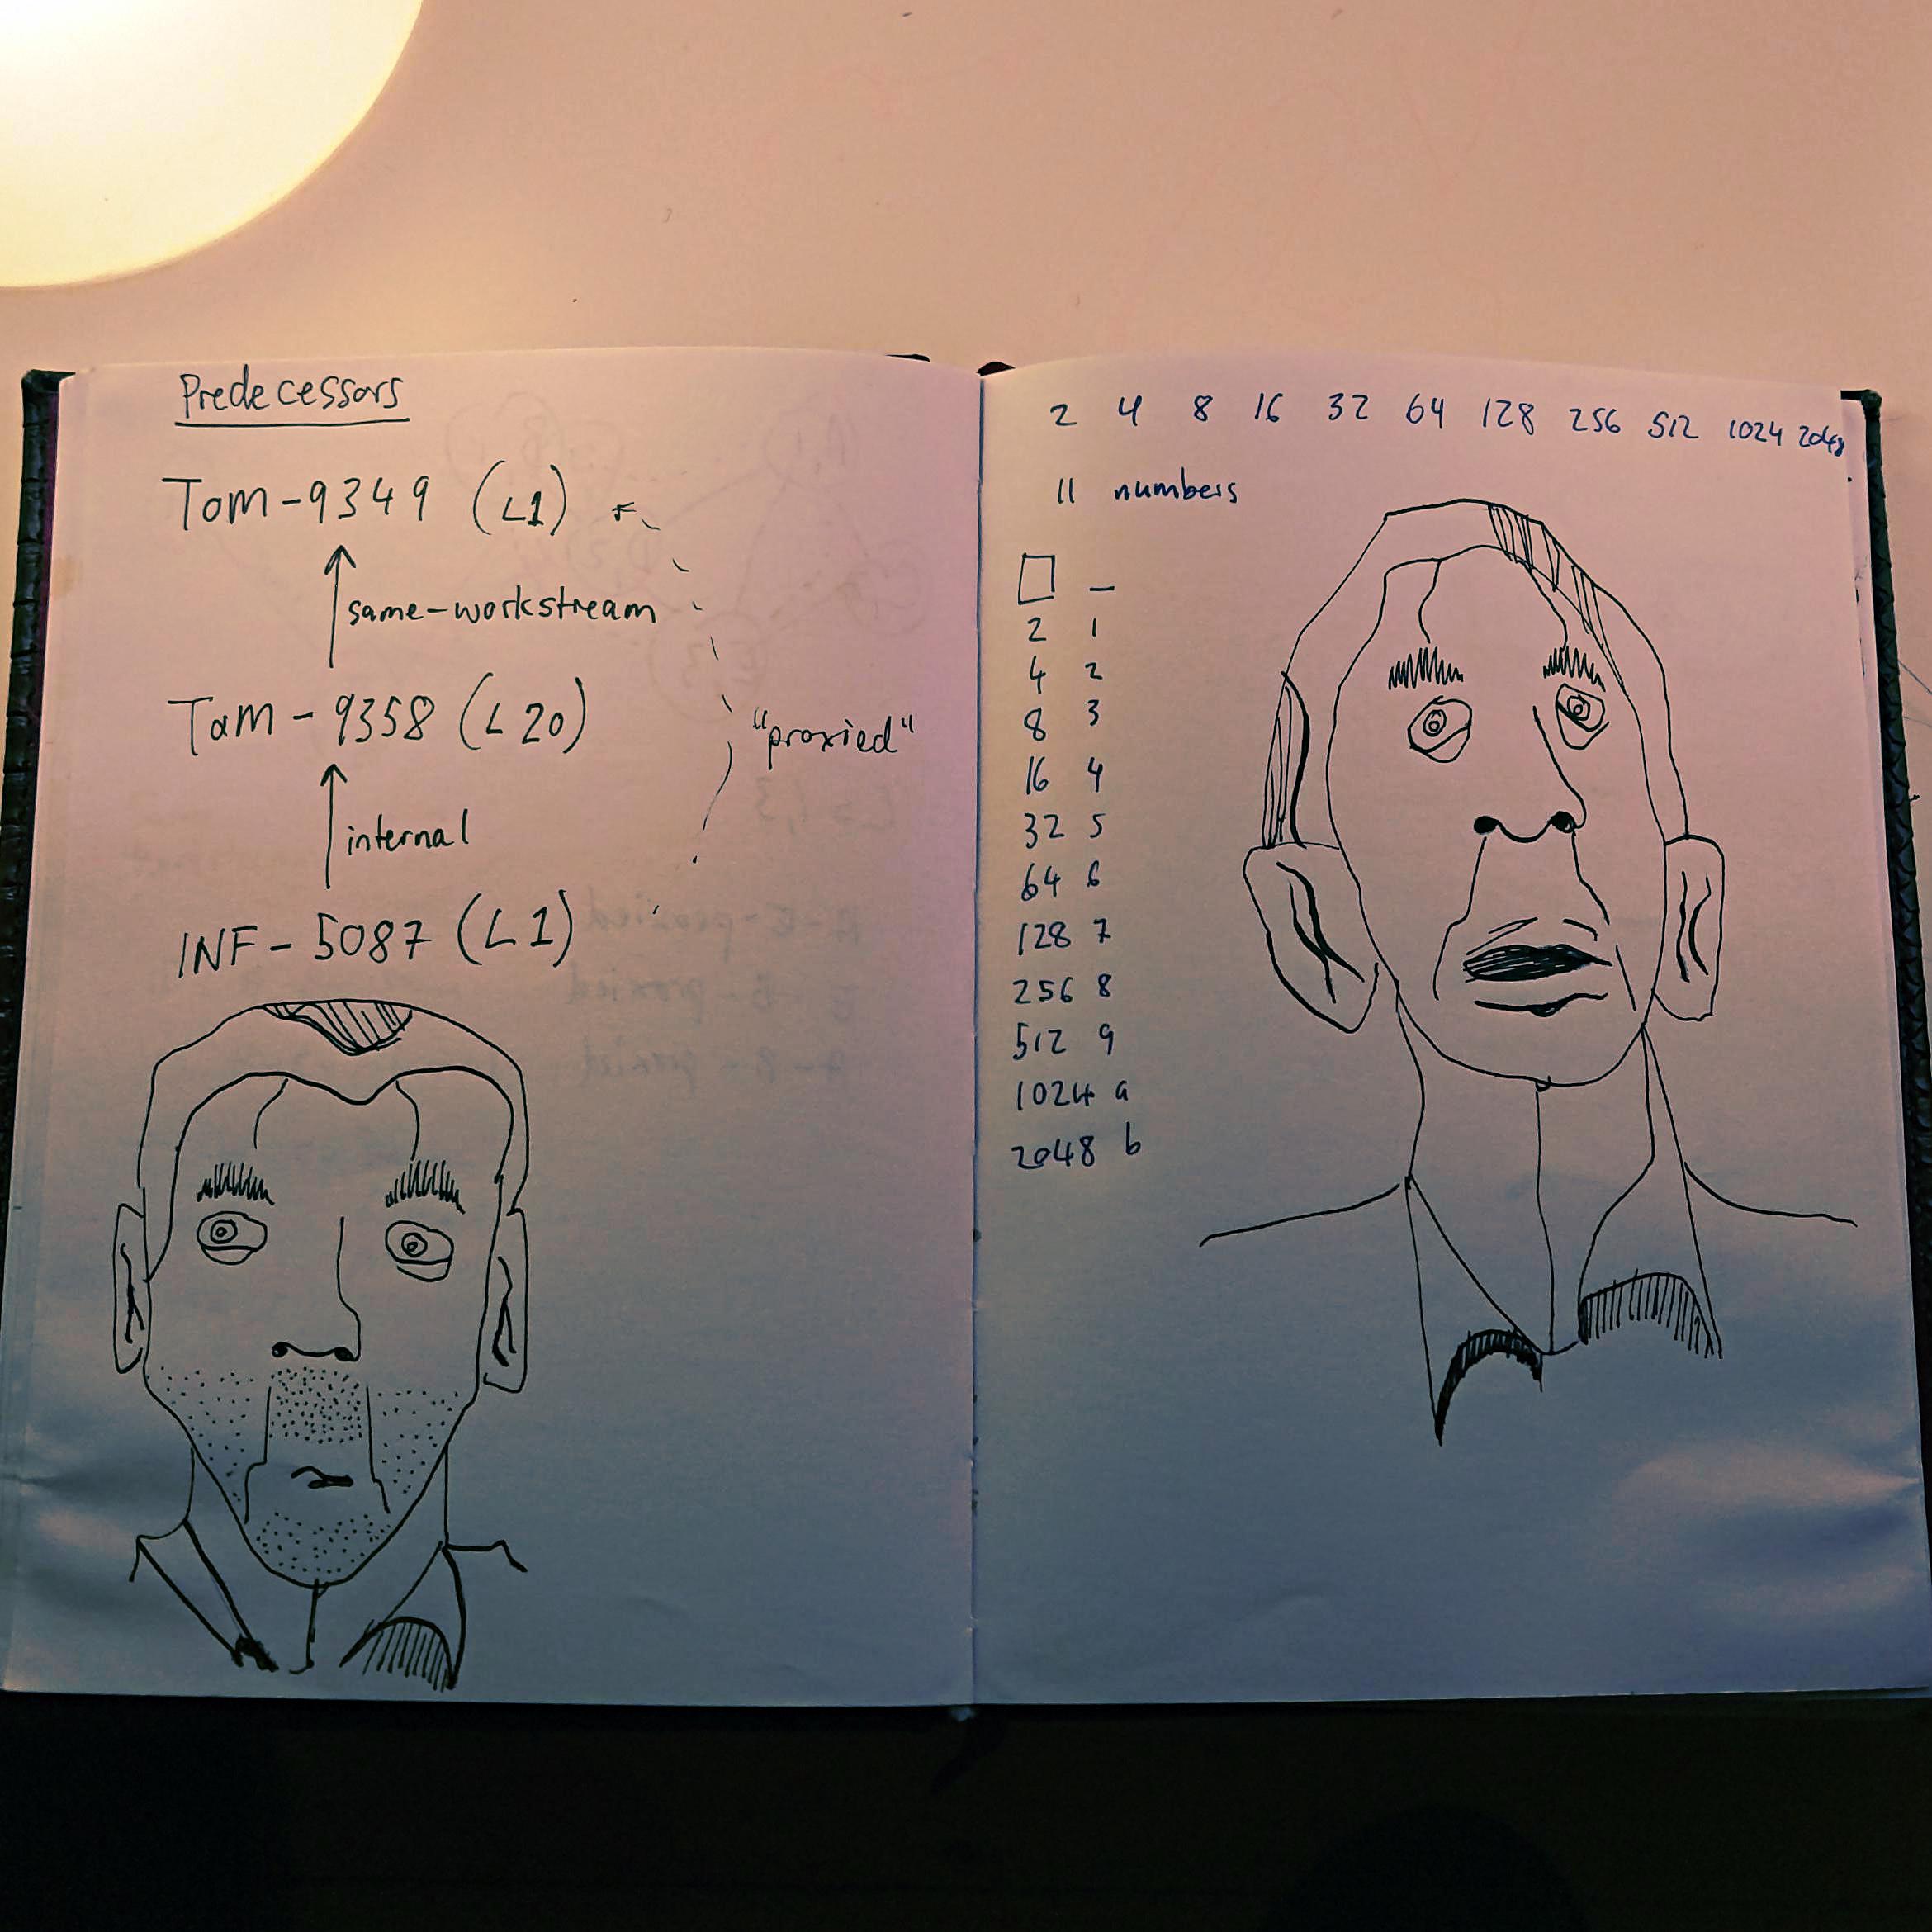 Predecessors
Tom-9349 (L1)
same-workstream
Tam-9358 (L20)
"proxied"
internal
INF-5087 (L1)
2 4 8 16 32 64 128 256 512 1024 2048
11 numbers
□ –
2 1
4 2
8 3
16 4
32 5
64 6
128 7
256 8
512 9
1024 a
2048 b